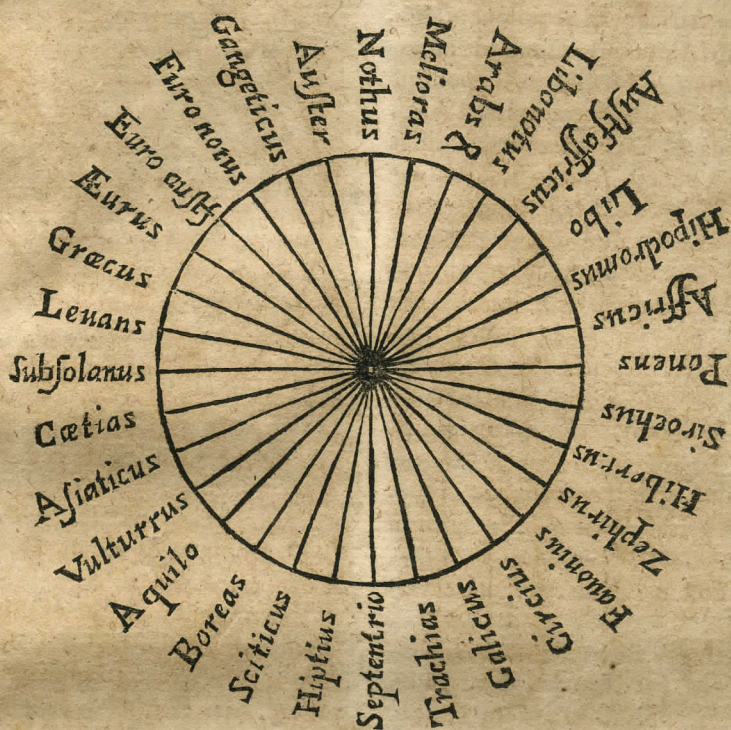 Nothus
Melioras
Arabs &
Libonotus
Auſtaffricus
Libo
Hipodromus
Affricus
Ponens
Sirochus
Hibertus
Zephirus
Fauonius
Circius
Galicus
Trachias
Septentrio
Hiptius
Sciticus
Boreas
Aquilo
Vulturrus
Aſiaticus
Cætias
Subſolanus
Leuans
Græcus
Æurus
Euro auſt
Euro notus
Gangeticus
Auſter